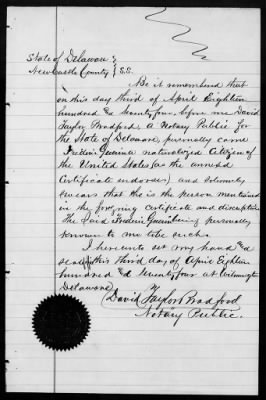 State of Delaware }
New Castle County } S.S.
Be it remembered that
on this day third of April Eighteen
hundred & seventy four, before me David
Taylor Bradford, a Notary Public for
the State of Delaware, personally came
Frederic a naturalized Citizen of
the United States (as the annexed
Certificate endorses) and solemnly
swears that he is the person mentioned
in the foregoing certificate and discription
The said Frederic being personally
known to me to be such.
I hereunto set my hand &
seal this third day of April Eighteen
hundred & seventy four at Wilmington
Delaware
David Taylor Bradford
Notary Public.